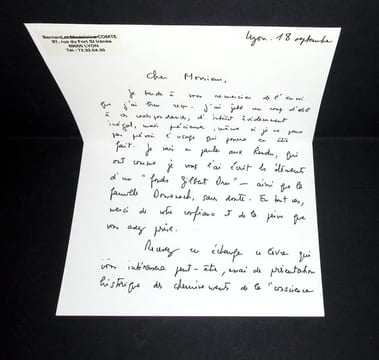 Bernard et Madeleine COMTE
87, rue du Fort St Irénée
69005 LYON
Tél : 72.32.04.30
Lyon. 18 septembre
Cher Monsieur,
Je tarde à vous remercier de l'envoi
que j'ai bien reçu. J'ai jeté un coup d'œil
à ce correspondance, d'intérêt évidemment
inégal, mais précieuse, même si je ne peux
pas prévoir l'usage qui pourra en être
fait. Je vais en parler aux, qui
ont comme je vous l'ai écrit les éléments
d'un "fonds Gilbert Dru" — ainsi que la
famille Domenach, sans doute. En tout cas,
merci de votre confiance et de la peine que
vous avez prise.
Recevez en échange ce livre qui
vous intéressera peut-être, essai de présentation
historique des cheminements de la "conscience